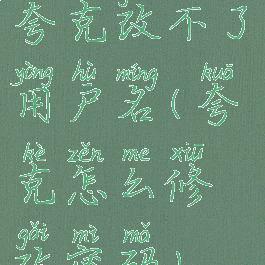 夸克改不了
yòng hù míng kuā
用户名(夸
kè zěn me xiū
克怎么修
gǎi mì mǎ
改密码)